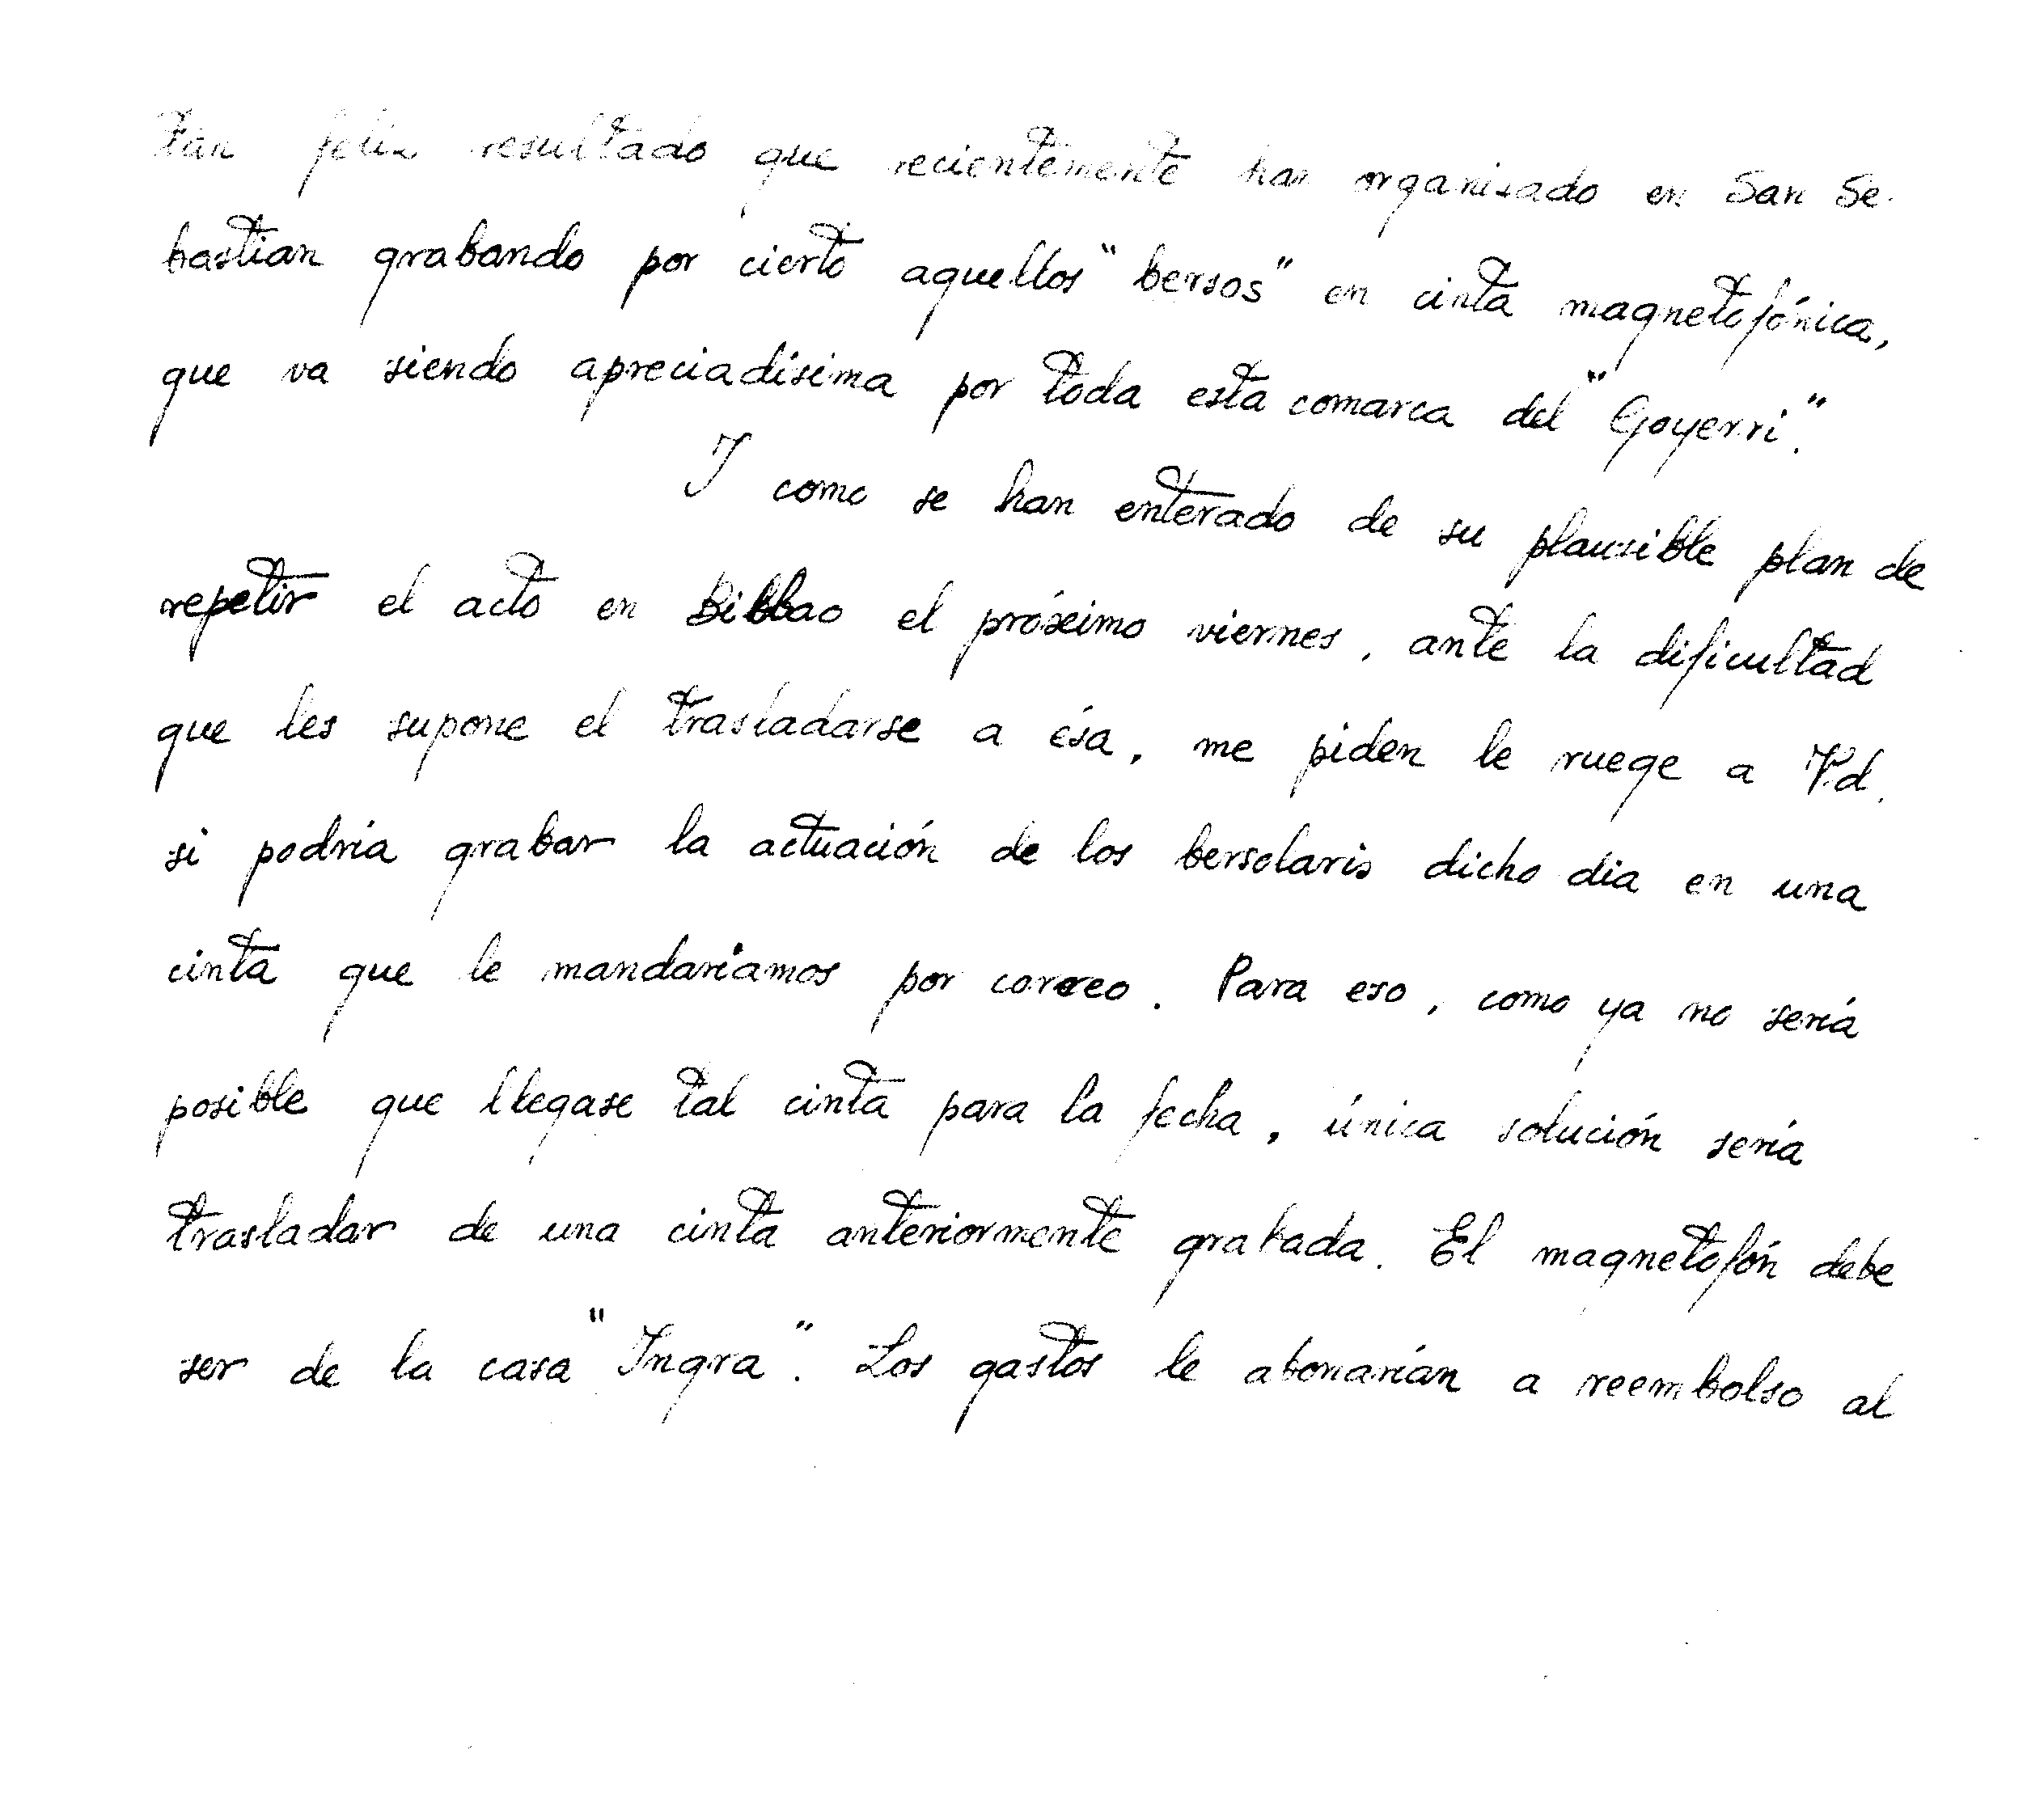 tan feliz resultado que recientemente han organisado en San Se-
bastian grabando por cierto aquellos "bersos" en cinta magnetofónica,
que va siendo apreciadísima por toda esta comarca del "Goyerri".
Y como se han enterado de su plausible plan de
repetir el acto en Bilbao el próximo viernes, ante la dificultad
que les supone el trasladarse a ésa, me piden le ruege a Vd.
si podría grabar la actuación de los bersolaris dicho dia en una
cinta que le mandaríamos por correo. Para eso, como ya no sería
posible que llegase tal cinta para la fecha, única solución sería
trasladar de una cinta anteriormente grabada. El magnetofón debe
ser de la casa "Ingra". Los gastos le abonarían a reembolso al